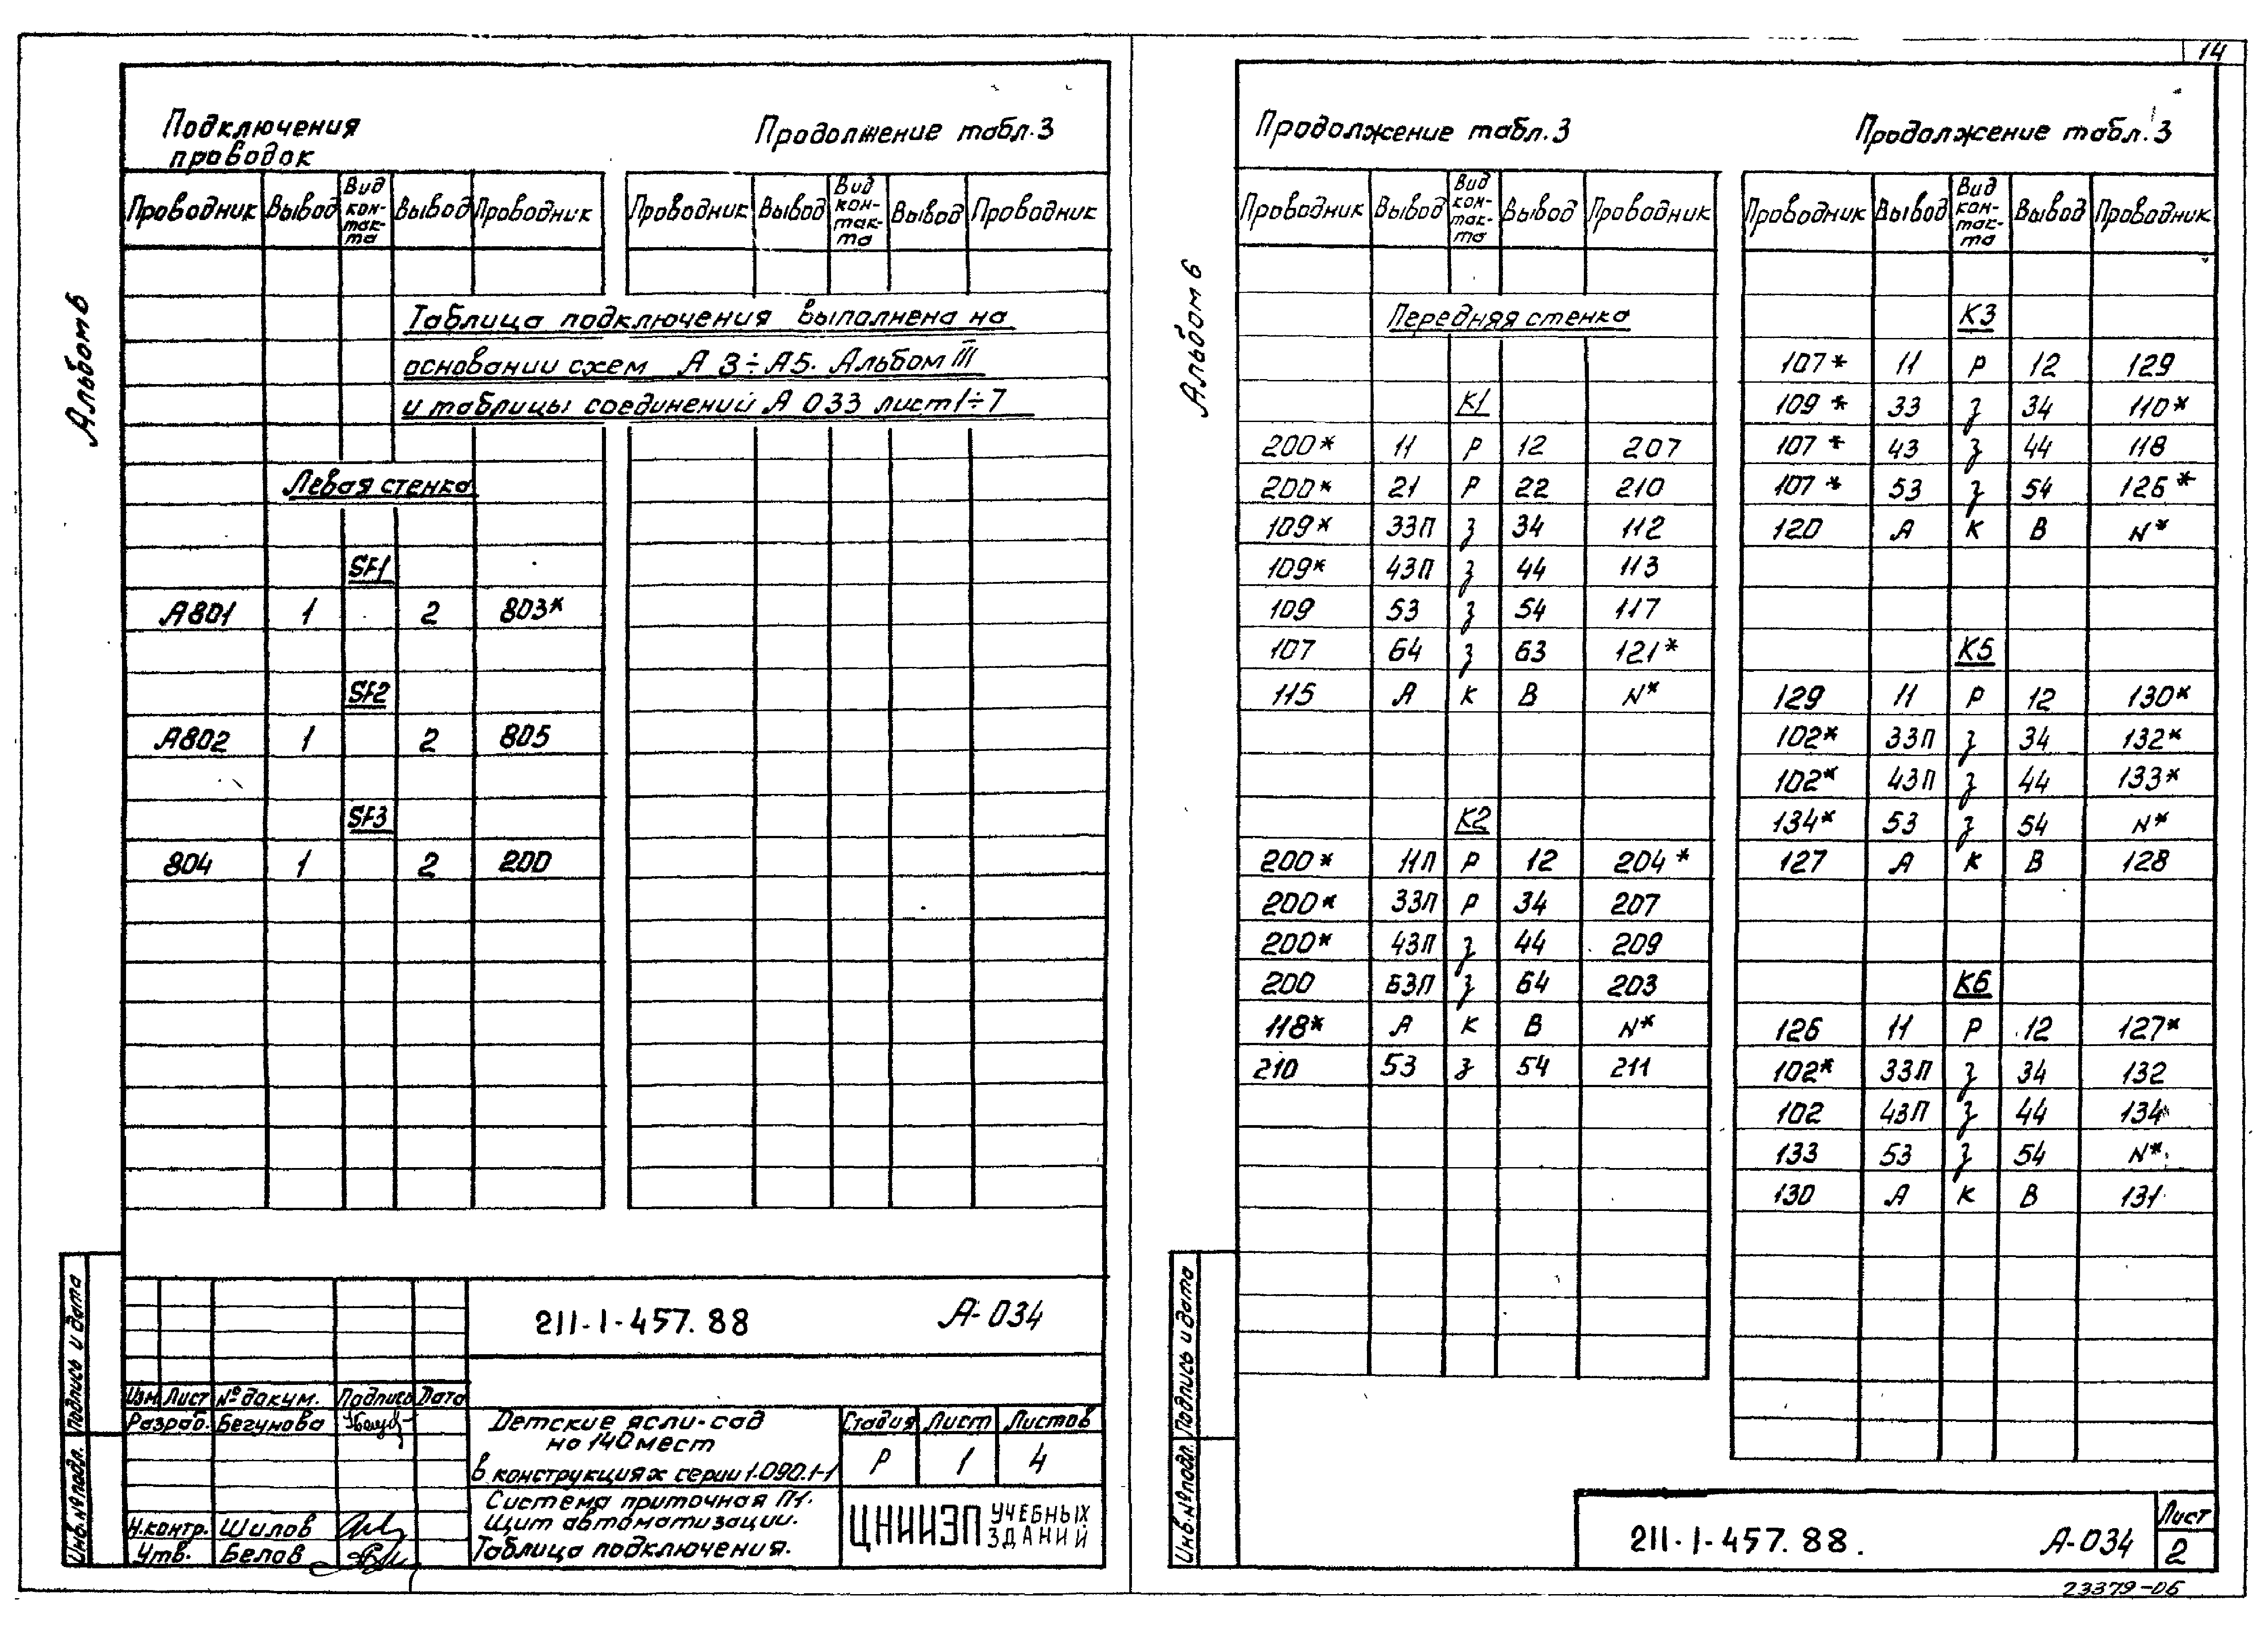 14
Альбом 6
Подключения
проводок
Продолжение табл.3
Проводник Вывод Вид кон-так-та Вывод Проводник
Проводник Вывод Вид кон-так-та Вывод Проводник
Таблица подключения выполнена на
основании схем А 3÷А5. Альбом III
и таблицы соединений А 033 лист 1÷7
Левая стенка
SF1
А801 1 2 803*
SF2
А802 1 2 805
SF3
804 1 2 200
211-1-457.88 А-034
Изм Лист № докум. Подпись Дата
Разраб. Бегунова
Н.контр. Шилов
Утв. Белов
Детские ясли-сад
на 140 мест
в конструкциях серии 1.090.1-1
Стадия Лист Листов
Р 1 4
Система приточная П1.
Щит автоматизации.
Таблица подключения.
ЦНИИЭП УЧЕБНЫХ
ЗДАНИЙ
Подпись и дата
Инв.№ подл.
Альбом 6
Продолжение табл.3
Проводник Вывод Вид кон-так-та Вывод Проводник
Передняя стенка
К1
200* 11 Р 12 207
200* 21 Р 22 210
109* 33П З 34 112
109* 43П З 44 113
109 53 З 54 117
107 64 З 63 121*
115 А К В N*
К2
200* 11П Р 12 204*
200* 33П Р 34 207
200* 43П З 44 209
200 63П З 64 203
118* А К В N*
210 53 З 54 211
Продолжение табл.3
Проводник Вывод Вид кон-так-та Вывод Проводник
К3
107* 11 Р 12 129
109* 33 З 34 110*
107* 43 З 44 118
107* 53 З 54 126*
120 А К В N*
К5
129 11 Р 12 130*
102* 33П З 34 132*
102* 43П З 44 133*
134* 53 З 54 N*
127 А К В 128
К6
126 11 Р 12 127*
102* 33П З 34 132
102 43П З 44 134
133 53 З 54 N*
130 А К В 131
Подпись и дата
Инв.№ подл.
211-1-457.88. А-034
Лист
2
23379-06